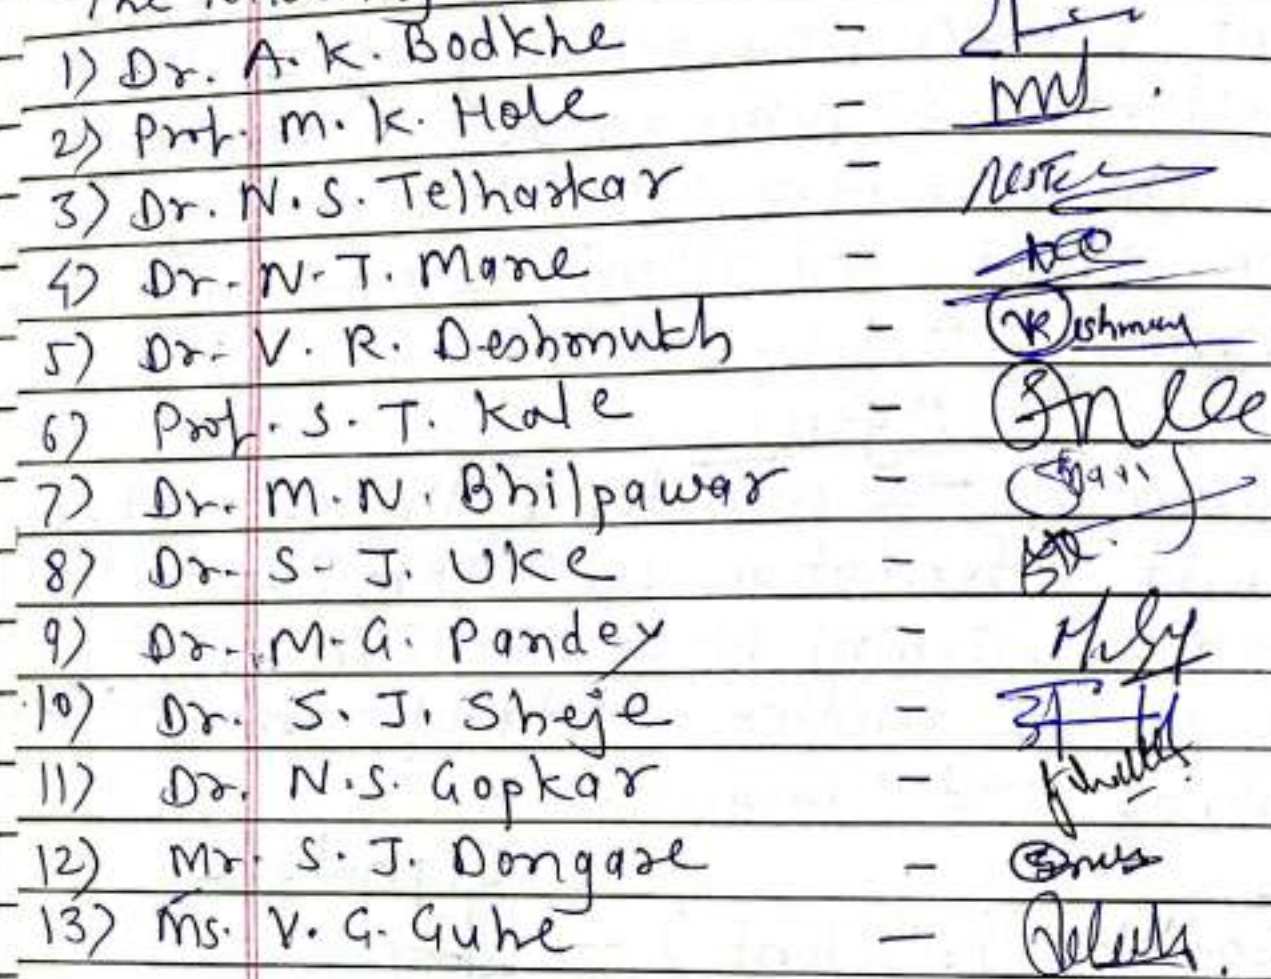 The following
1) Dr. A. K. Bodkhe -
2) Prof. M. K. Hole -
3) Dr. N. S. Telharkar -
4) Dr. N. T. Mane -
5) Dr. V. R. Deshmukh -
6) Prof. S. T. Kale -
7) Dr. M. N. Bhilpawar -
8) Dr. S. J. Uke -
9) Dr. M. G. Pandey -
10) Dr. S. J. Sheje -
11) Dr. N. S. Gopkar -
12) Mr. S. J. Dongare -
13) Ms. V. G. Guhe -